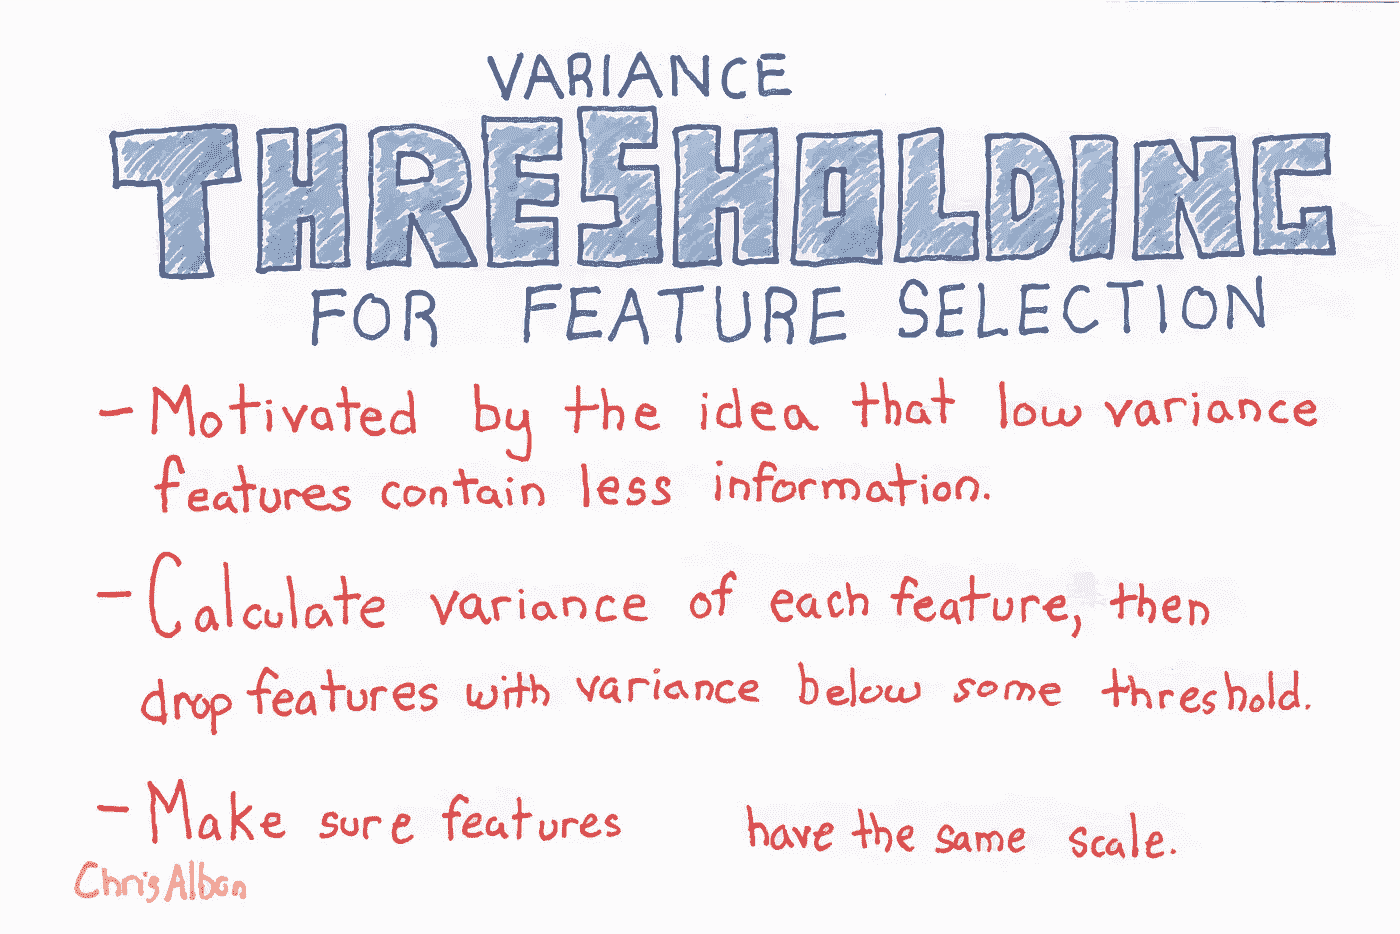 VARIANCE
THRESHOLDING
FOR FEATURE SELECTION
- Motivated by the idea that low variance
features contain less information.
- Calculate variance of each feature, then
drop features with variance below some threshold.
- Make sure features have the same scale.
Chris Albon